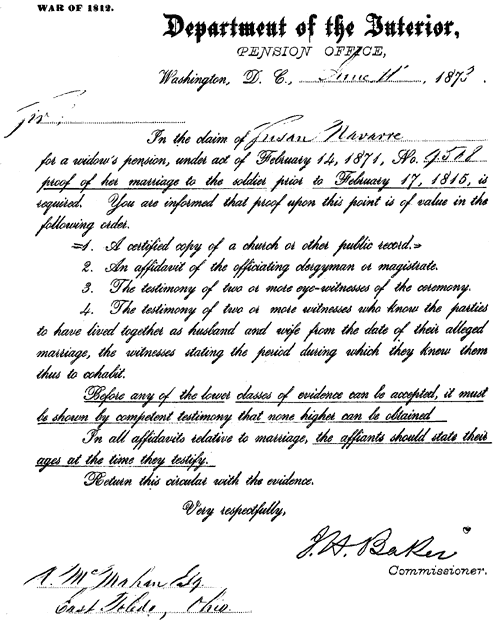 WAR OF 1812.
Department of the Interior,
PENSION OFFICE,
Washington, D. C., June 11, 1873.
Sir:
In the claim of Susan Navarre
for a widow's pension, under act of February 14, 1871, No. 9508
proof of her marriage to the soldier prior to February 17, 1815, is
required. You are informed that proof upon this point is of value in the
following order.
=1. A certified copy of a church or other public record.=
2. An affidavit of the officiating clergyman or magistrate.
3. The testimony of two or more eye-witnesses of the ceremony.
4. The testimony of two or more witnesses who know the parties
to have lived together as husband and wife from the date of their alleged
marriage, the witnesses stating the period during which they knew them
thus to cohabit.
Before any of the lower classes of evidence can be accepted, it must
be shown by competent testimony that none higher can be obtained
In all affidavits relative to marriage, the affiants should state their
ages at the time they testify.
Return this circular with the evidence.
Very respectfully,
J. H. Baker
Commissioner.
McMahan Esq
East Toledo, Ohio